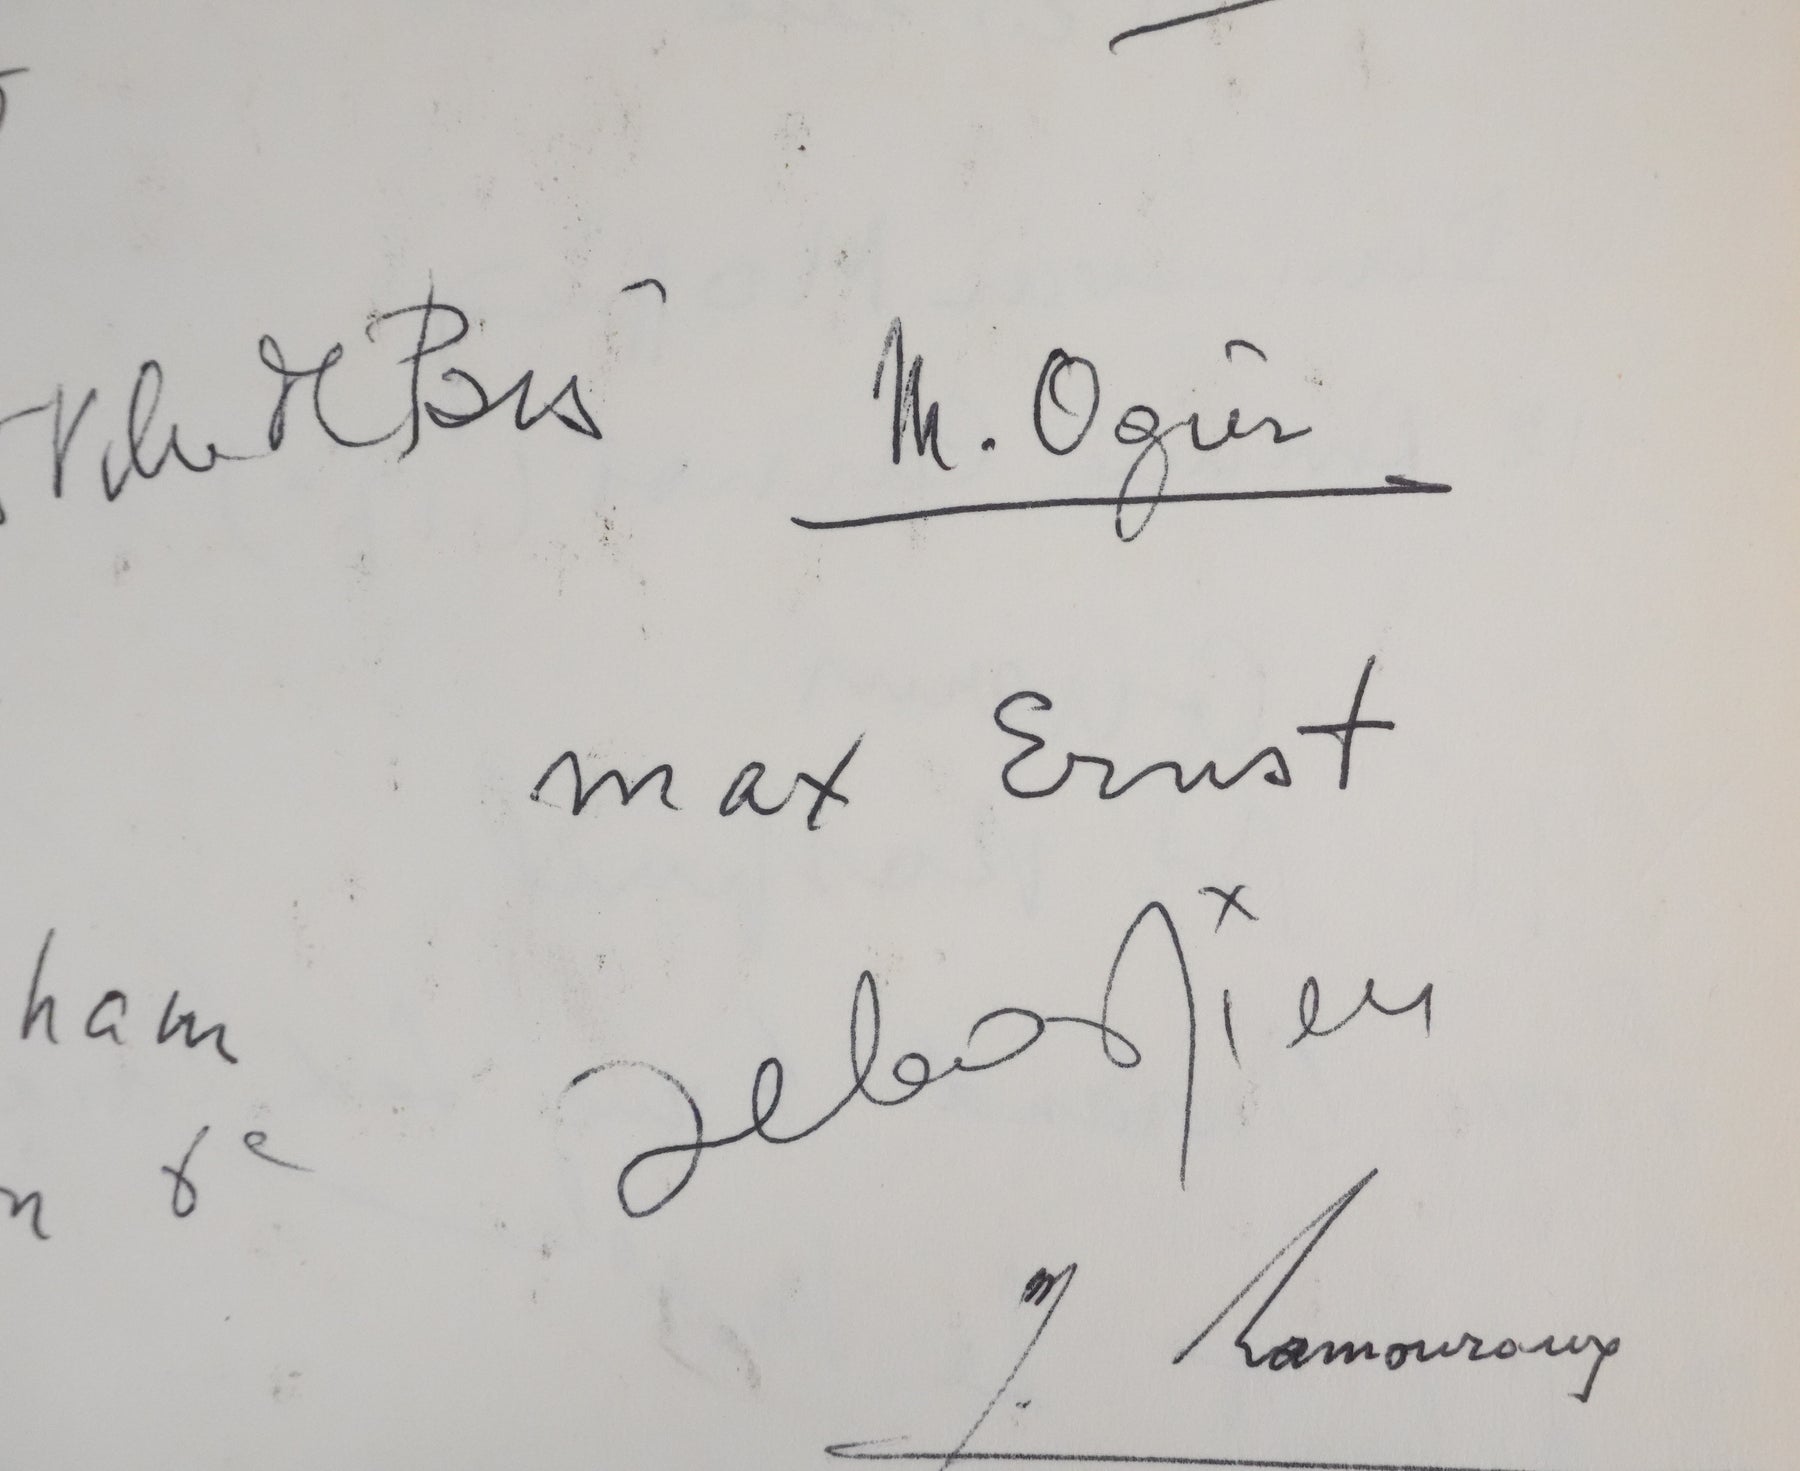 Ville de Paris
M. Ogier
max Ernst
ham
Sebastien
n 6e
J. Lamouroux